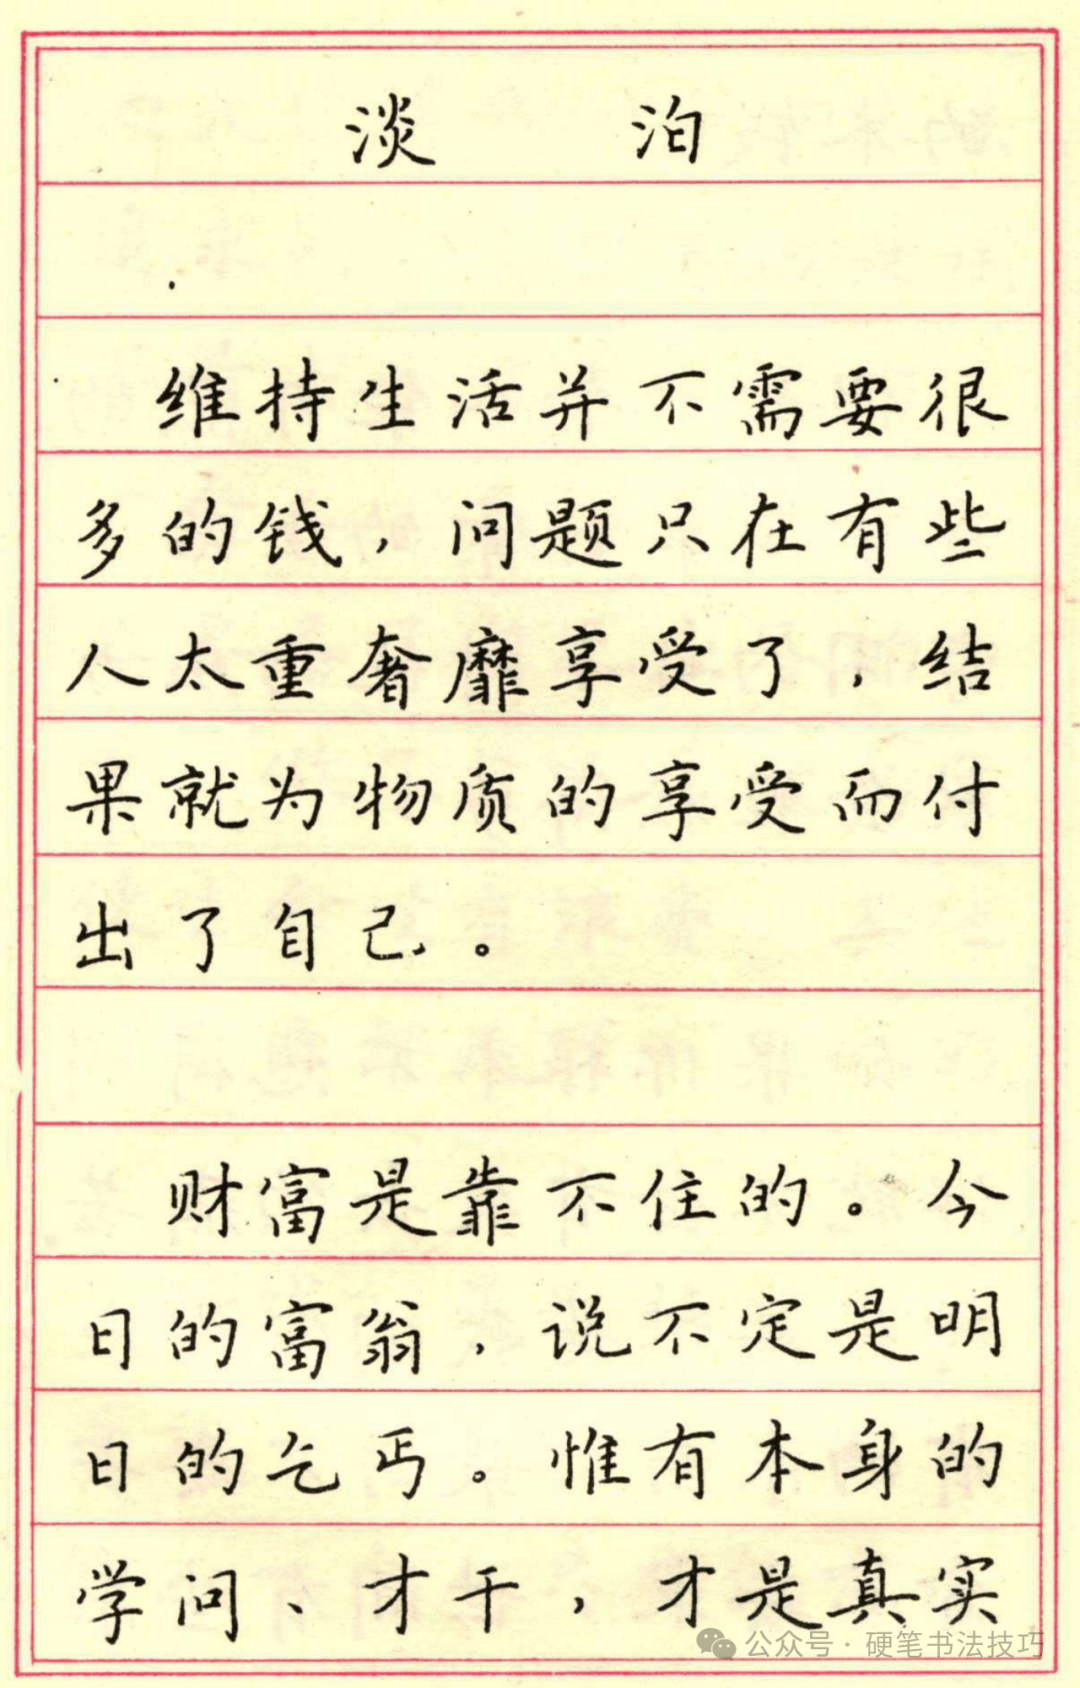 淡 泊
维持生活并不需要很
多的钱，问题只在有些
人太重奢靡享受了，结
果就为物质的享受而付
出了自己。
财富是靠不住的。今
日的富翁，说不定是明
日的乞丐。惟有本身的
学问、才干，才是真实
公众号·硬笔书法技巧